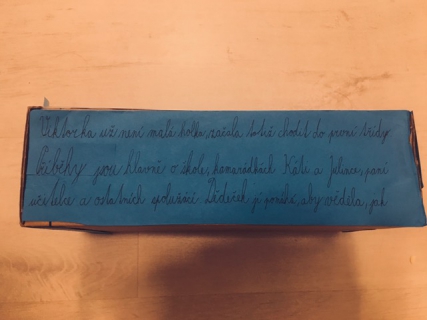 Viktorka už není malá holka, začala totiž chodit do první třídy.
Příběhy jsou hlavně o škole, kamarádkách Káti a Julince, paní
učitelce a ostatních spolužácích. Dědeček jí pomáhá, aby věděla, jak